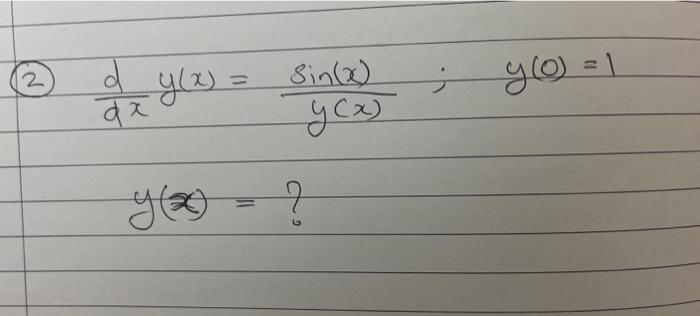 ② d/dx y(x) = sin(x)/y(x) ; y(0) = 1
y(x) = ?